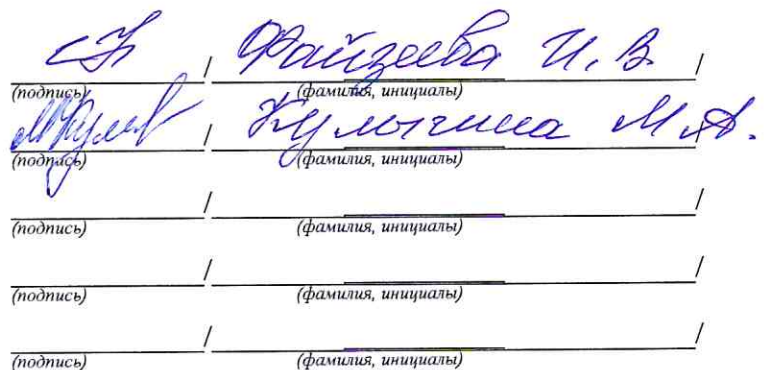 / Файзеева И. В. /
(подпись) (фамилия, инициалы)
/ Кулыгина М. А. /
(подпись) (фамилия, инициалы)
/ /
(подпись) (фамилия, инициалы)
/ /
(подпись) (фамилия, инициалы)
/ /
(подпись) (фамилия, инициалы)